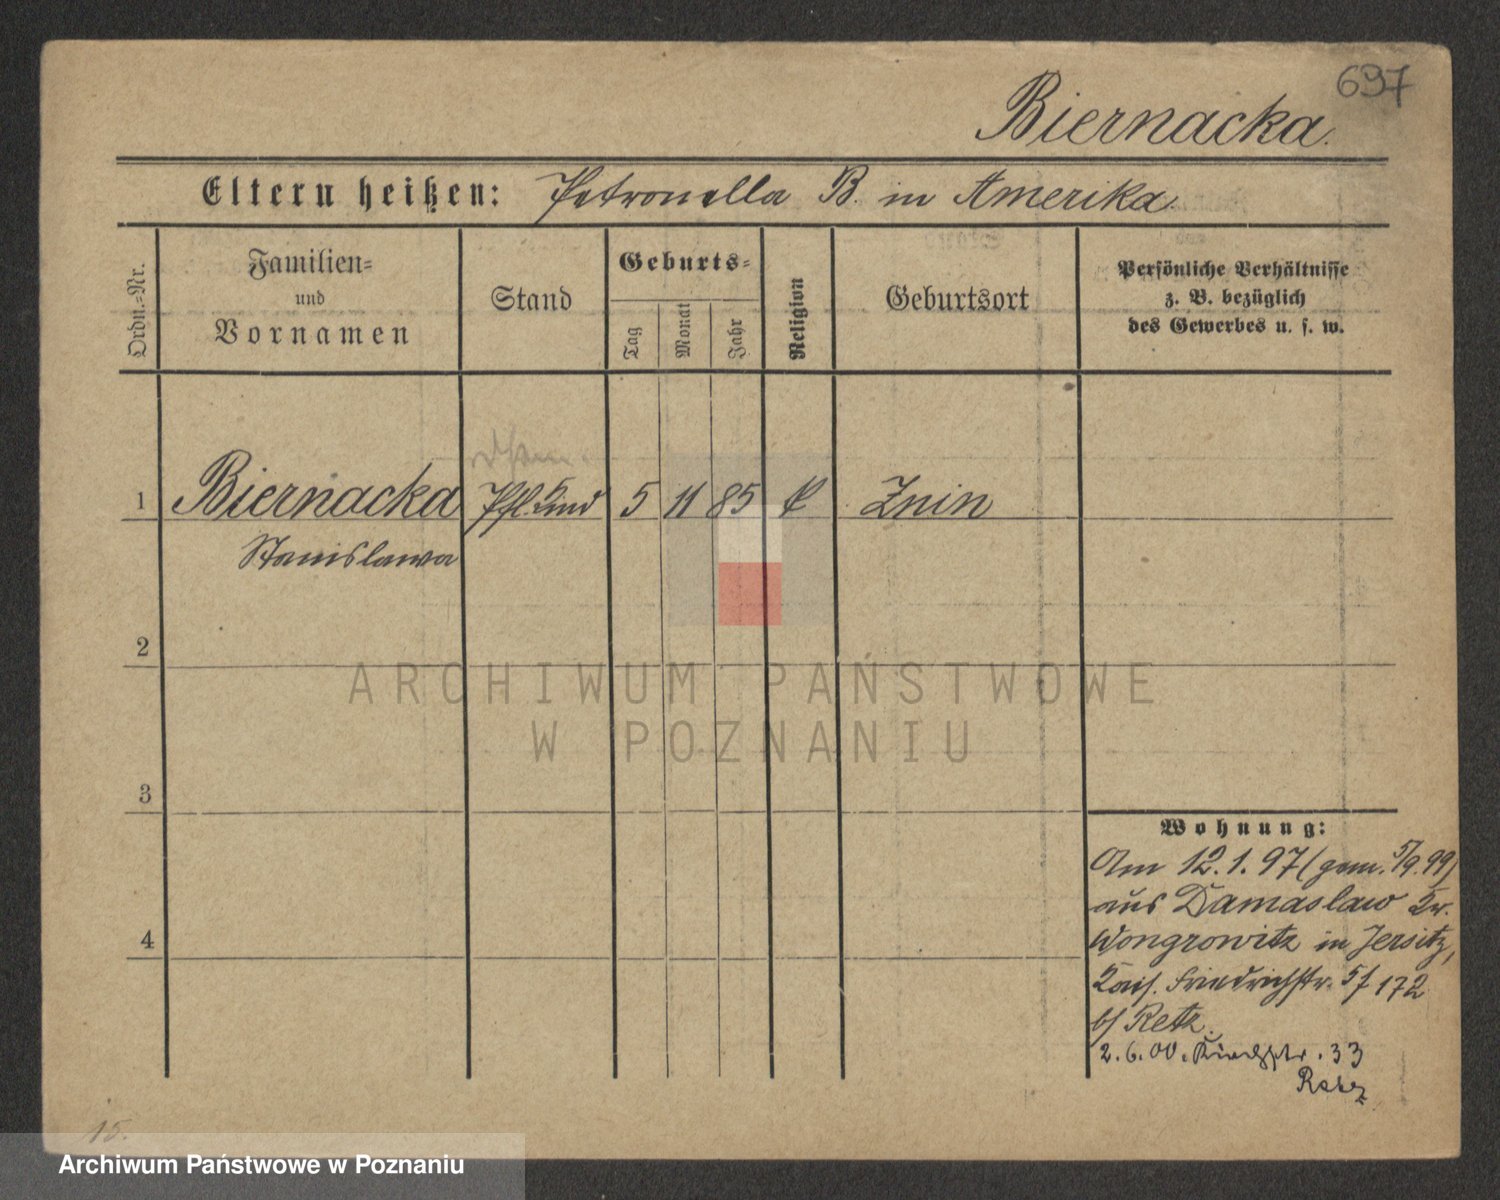 697
Biernacka.
Eltern heißen: Petronella B. in Amerika.
Ordn.-Nr.
Familien-
und
Vornamen
Stand
Geburts-
Tag
Monat
Jahr
Religion
Geburtsort
Persönliche Verhältnisse
z. B. bezüglich
des Gewerbes u. s. w.
1 Biernacka Pfl. Kind 5 11 85 k Znin
Stanislawa
2
3
4
ARCHIWUM PAŃSTWOWE
W POZNANIU
Wohnung:
Am 12.1.97 (gem. 5/9.99)
aus Damaslaw Kr.
Wongrowitz in Jersitz,
Kais. Friedrichstr. 5/172
b/ Retz.
2.6.00. Kirchstr. 33
Retz
15.
Archiwum Państwowe w Poznaniu